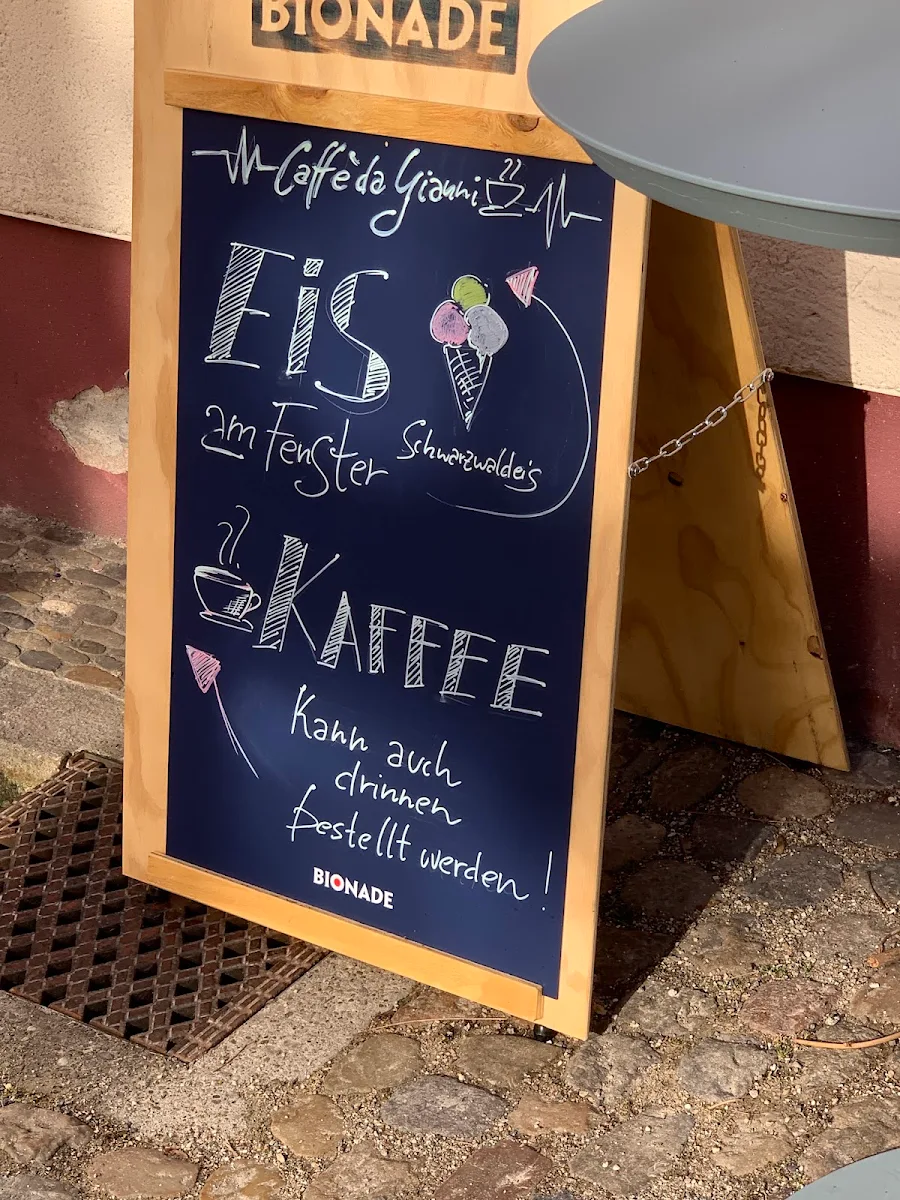 BIONADE
Caffè da Gianni
EiS
am Fenster
Schwarzwaldeis
KAFFEE
Kann auch
drinnen
bestellt werden!
BIONADE